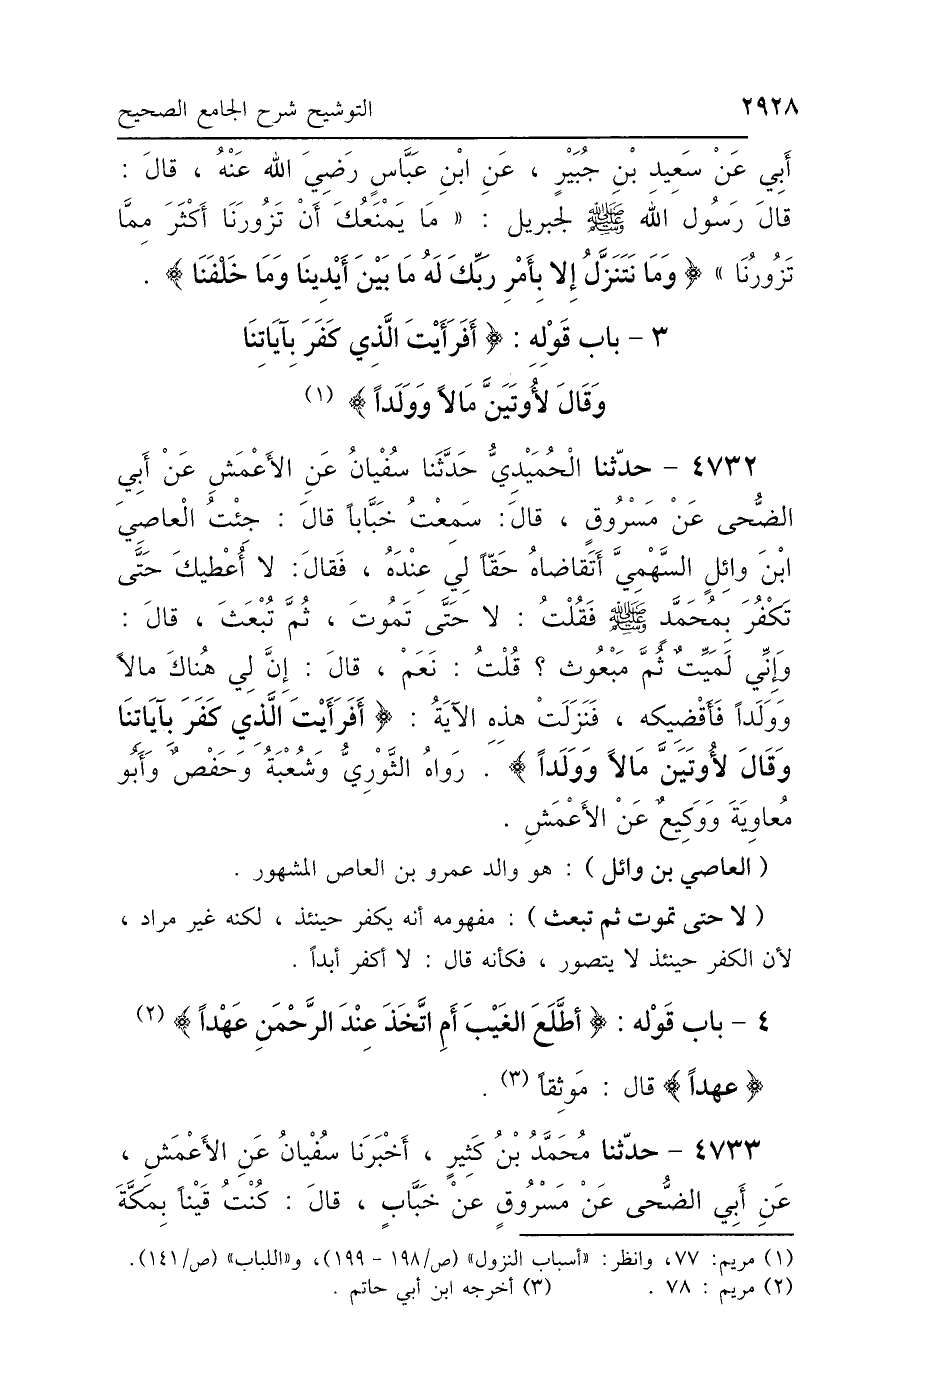 ٢٩٢٨ التوشيح شرح الجامع الصحيح
أَبِي عَنْ سَعِيدِ بْنِ جُبَيْرٍ ، عَنِ ابْنِ عَبَّاسٍ رَضِيَ الله عَنْهُ ، قالَ :
قالَ رَسُول الله ﷺ لجبريل : « مَا يَمْنَعُكَ أَنْ تَزُورَنَا أَكْثَرَ مِمَّا
تَزُورُنَا » ﴿ وَمَا نَتَنَزَّلُ إلا بِأَمْرِ رَبِّكَ لَهُ مَا بَيْنَ أَيْدِينَا وَمَا خَلْفَنَا ﴾ .
٣ - باب قَوْلِهِ : ﴿ أَفَرَأَيْتَ الَّذِي كَفَرَ بِآيَاتِنَا
وَقَالَ لأُوتَيَنَّ مَالاً وَوَلَداً ﴾ (١)
٤٧٣٢ - حدّثنا الْحُمَيْدِيُّ حَدَّثَنا سُفْيانُ عَنِ الأَعْمَشِ عَنْ أَبِي
الضُّحى عَنْ مَسْرُوقٍ ، قالَ: سَمعْتُ خَبَّاباً قالَ : جِئْتُ الْعاصِيَ
ابْنَ وائلٍ السَّهْمِيَّ أَتَقاضاهُ حَقّاً لِي عِنْدَهُ ، فَقالَ: لا أُعْطيكَ حَتَّى
تَكْفُرَ بِمُحَمَّدٍ ﷺ فَقُلْتُ : لا حَتَّى تَمُوتَ ، ثُمَّ تُبْعَثَ ، قالَ :
وَإِنِّي لَمَيِّتٌ ثُمَّ مَبْعُوث ؟ قُلْتُ : نَعَمْ ، قالَ : إِنَّ لي هُناكَ مالاً
وَوَلَداً فَأَقْضيكه ، فَنَزَلَتْ هذِهِ الآيَةُ : ﴿ أَفَرَأَيْتَ الَّذِي كَفَرَ بِآيَاتِنَا
وَقَالَ لأُوتَيَنَّ مَالاً وَوَلَداً ﴾ . رَواهُ الثَّوْرِيُّ وَشُعْبَةُ وَحَفْصٌ وَأَبُو
مُعاوِيَةَ وَوَكِيعٌ عَنْ الأَعْمَشِ .
( العاصي بن وائل ) : هو والد عمرو بن العاص المشهور .
( لا حتى تموت ثم تبعث ) : مفهومه أنه يكفر حينئذ ، لكنه غير مراد ،
لأن الكفر حينئذ لا يتصور ، فكأنه قال : لا أكفر أبداً .
٤ - باب قَوْلُه : ﴿ أطَّلَعَ الغَيْبَ أَمِ اتَّخَذَ عِنْدَ الرَّحْمَنِ عَهْداً ﴾ (٢)
﴿ عهداً ﴾ قال : مَوثقاً (٣) .
٤٧٣٣ - حدّثنا مُحَمَّدُ بْنُ كَثِيرٍ ، أَخْبَرَنا سُفْيانُ عَنِ الأَعْمَشِ ،
عَنِ أَبِي الضُّحى عَنْ مَسْرُوقٍ عنْ خَبَّابٍ ، قالَ : كُنْتُ قَيْناً بِمَكَّةَ
(١) مريم: ٧٧، وانظر: «أسباب النزول» (ص/١٩٨ - ١٩٩)، و«اللباب» (ص/١٤١).
(٢) مريم : ٧٨ . (٣) أخرجه ابن أبي حاتم .